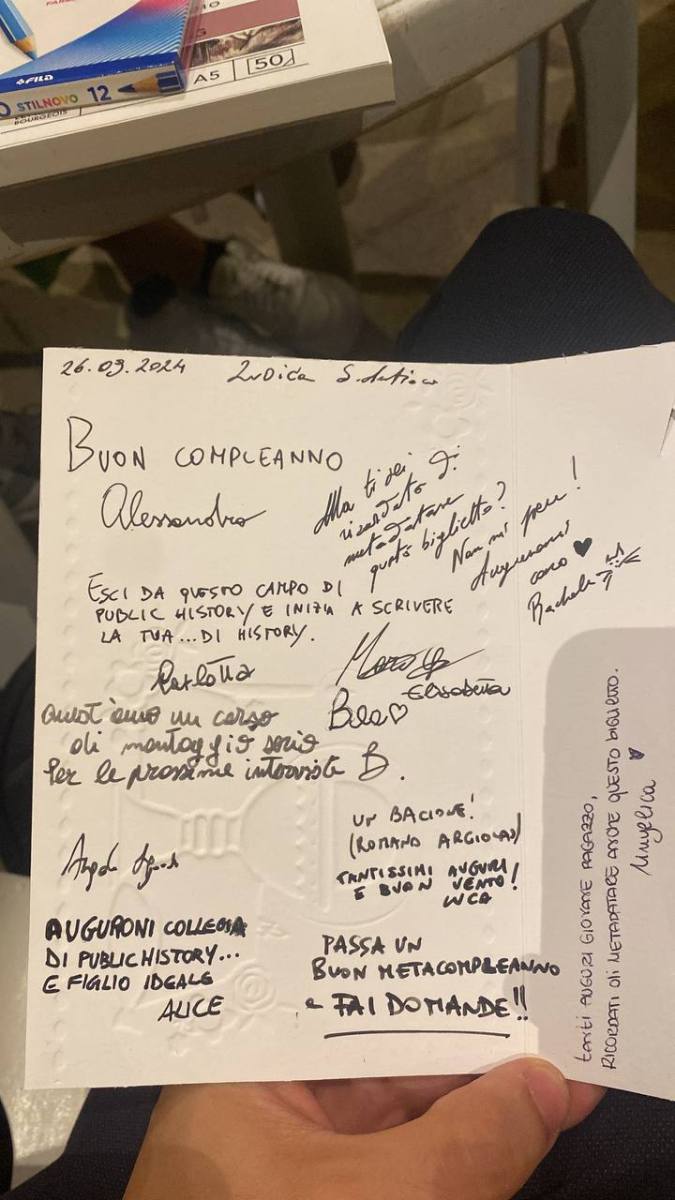 FILA
STILNOVO 12
BOURGEOIS
A5 50
26.09.2024
BUON COMPLEANNO
Alessandro
Ma ti sei
ricordato di
metadatare
questo biglietto?
Non mi pare!
Auguroni
caro ♥
Rachele
ESCI DA QUESTO CAMPO DI
PUBLIC HISTORY E INIZIA A SCRIVERE
LA TUA... DI HISTORY.
Carlotta
Elisabetta
Bea♡
un corso
di montaggio serio
Per le prossime interviste B.
UN BACIONE!
(ROMANO ARGIOLAS)
TANTISSIMI AUGURI
E BUON VENTO!
AUGURONI COLLEGA
DI PUBLIC HISTORY...
E FIGLIO IDEALE
ALICE
PASSA UN
BUON METACOMPLEANNO
e FAI DOMANDE!!
tanti AUGURI GIOVANE RAGAZZO,
RICORDATI di METADATARE ANCHE QUESTO BIGLIETTO.
Angelica ♥